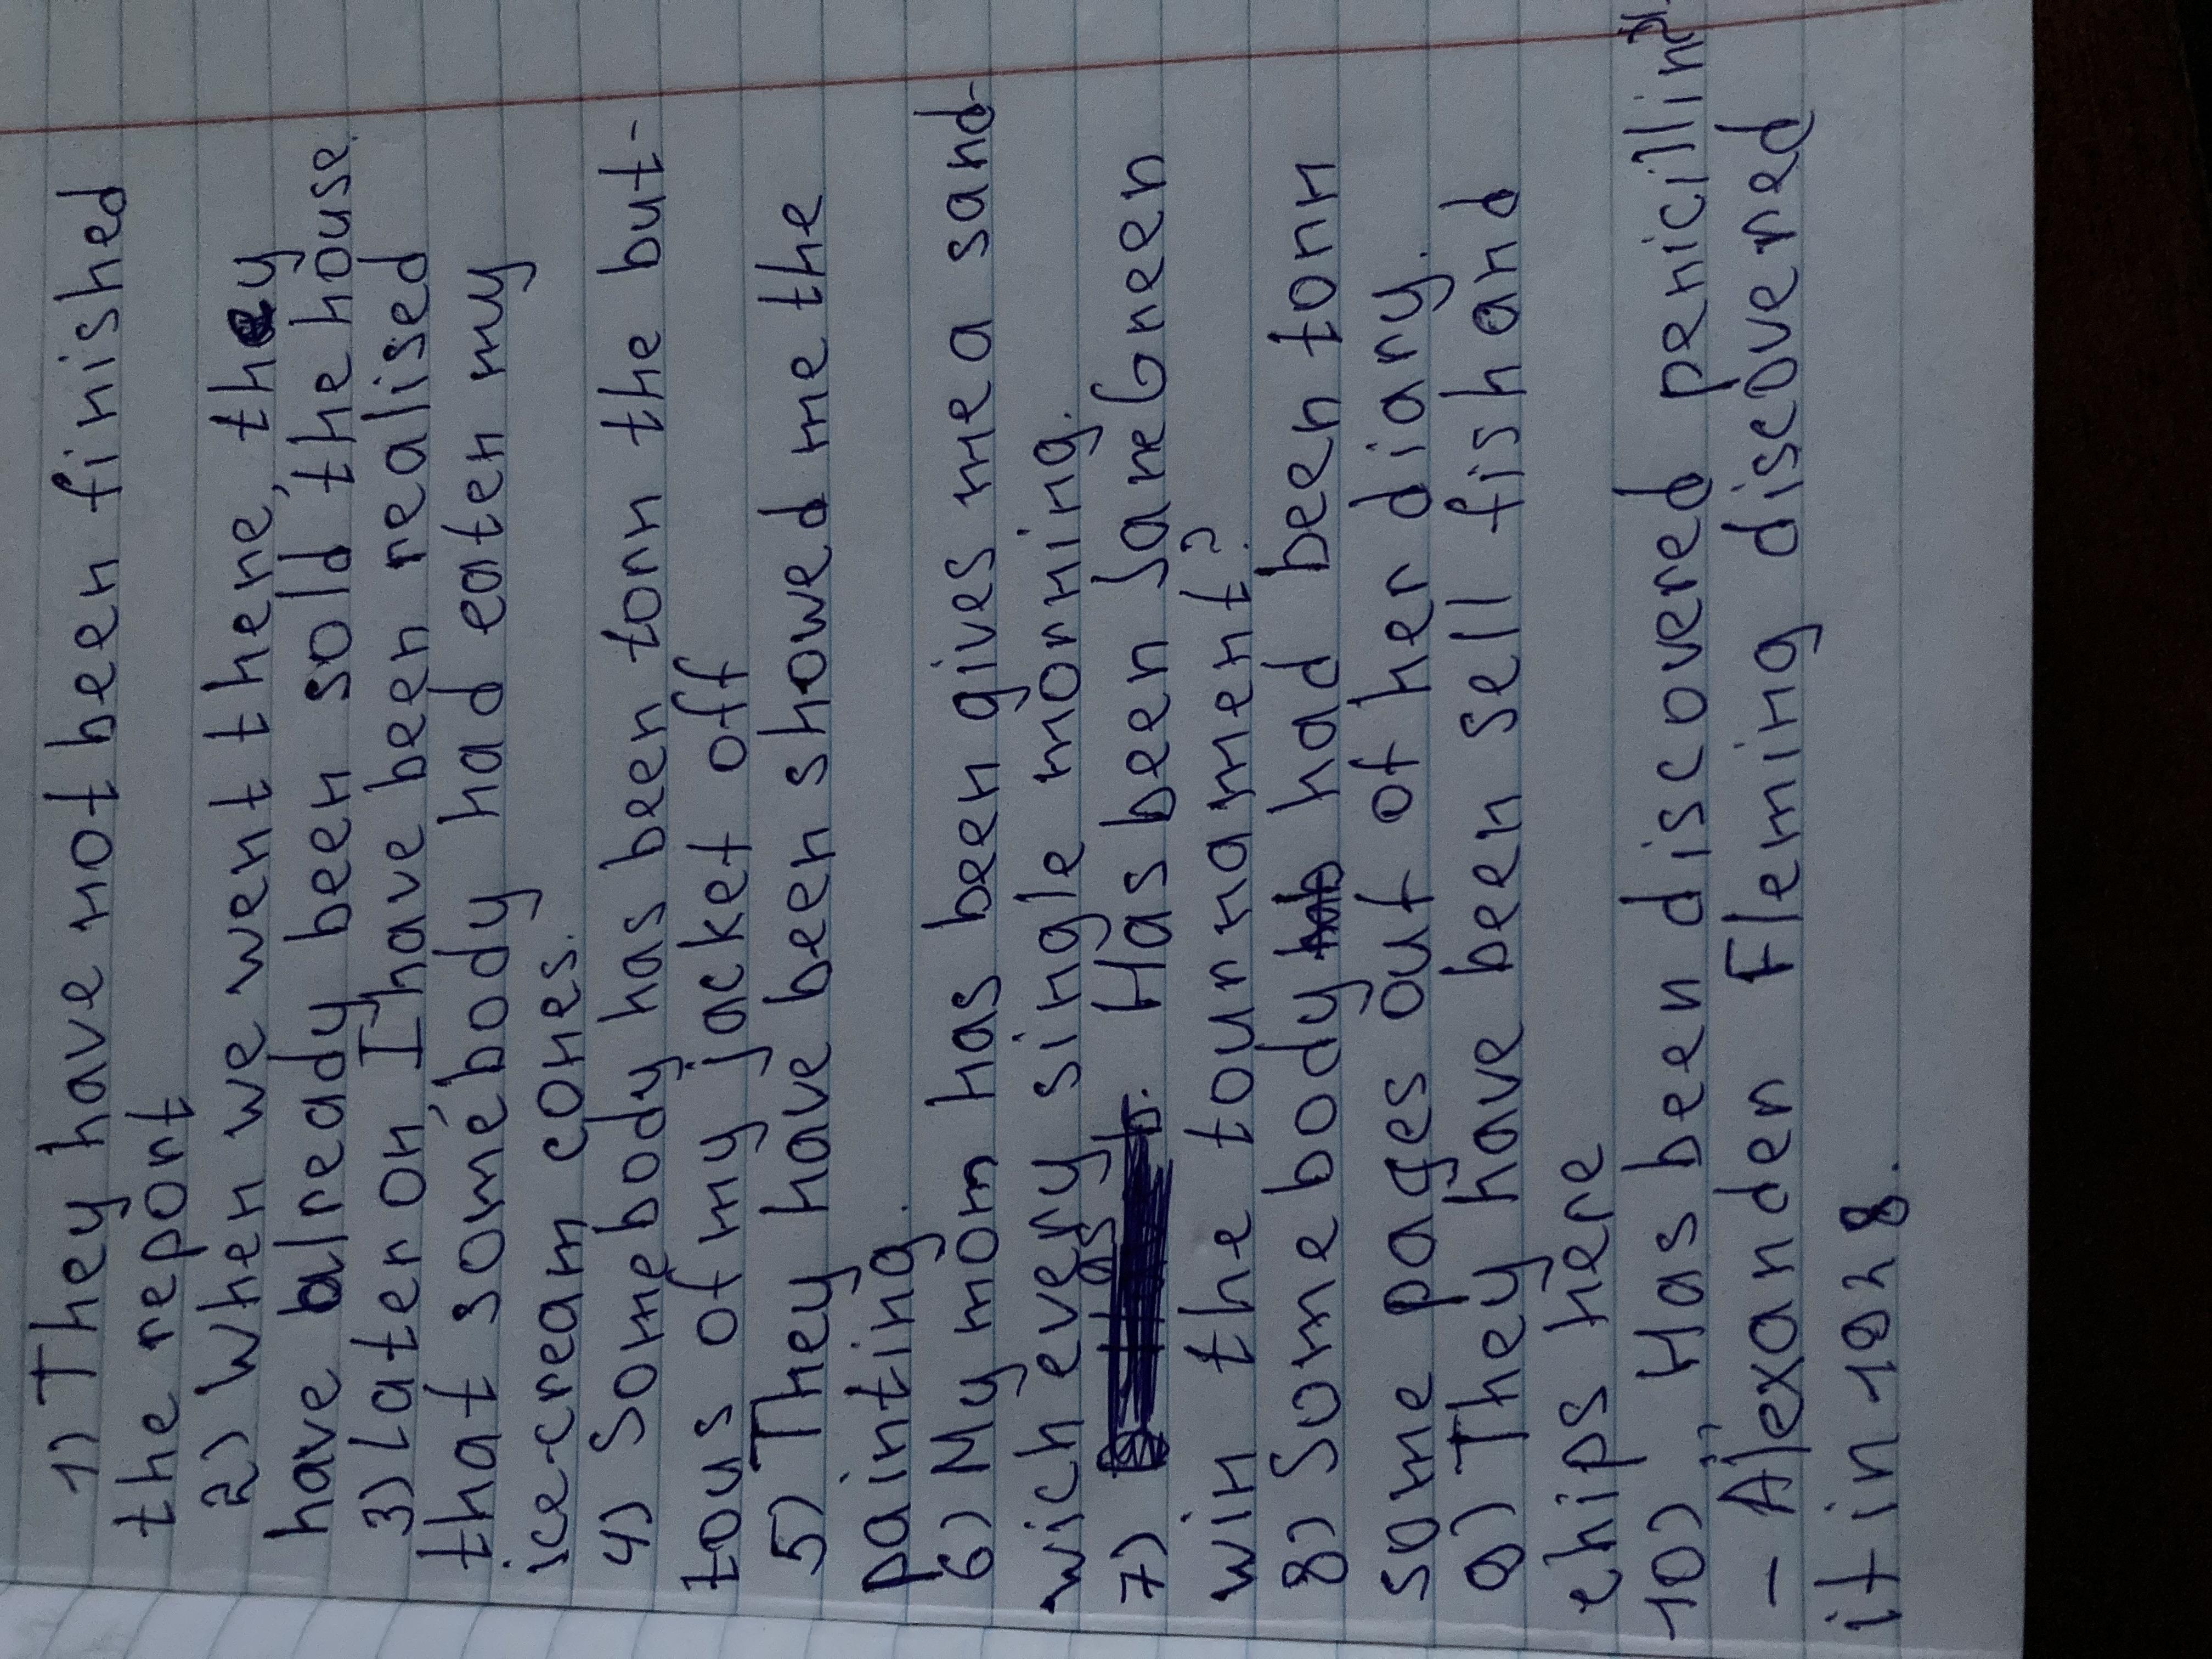 1) They have not been finished
the report
2) When we went there, they
have already been sold the house.
3) Later on, I have been realised
that somebody had eaten my
ice-cream cones.
4) Somebody has been torn the but-
tous of my jacket off
5) They have been showed me the
painting.
6) My mom has been gives me a sand-
wich every single morning.
7) Has been Jane Green
win the tournament?
8) Somebody had been torn
some pages out of her diary.
9) They have been sell fish and
chips here
10) „Has been discovered penicillin?"
- Alexander Fleming discovered
it in 1928.